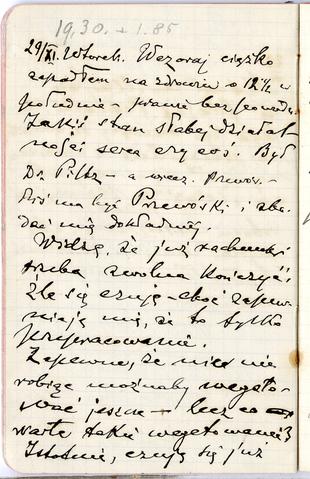 19,30. + 1.85
29/XI. Wtorek. Wczoraj ciężko
zapadłem na zdrowiu o 12½ w
południe – prawie bez powodu.
Jakiś stan słabej działal
ności serca czy coś. Był
Dr. Piltz – a wiecz. Przewós.-
Dziś ma być Przewóski i zba-
dać mię dokładniej.
Widzę, że już rachunki
trzeba zwolna kończyć;
Źle się czuję – choć zapew-
niają mię, że to tylko
przepracowanie.
Zapewne, że nic nie
robiąc możnaby wegeto-
wać jeszcze – lecz co
warte takie wegetowanie?
Istotnie, czuję się już